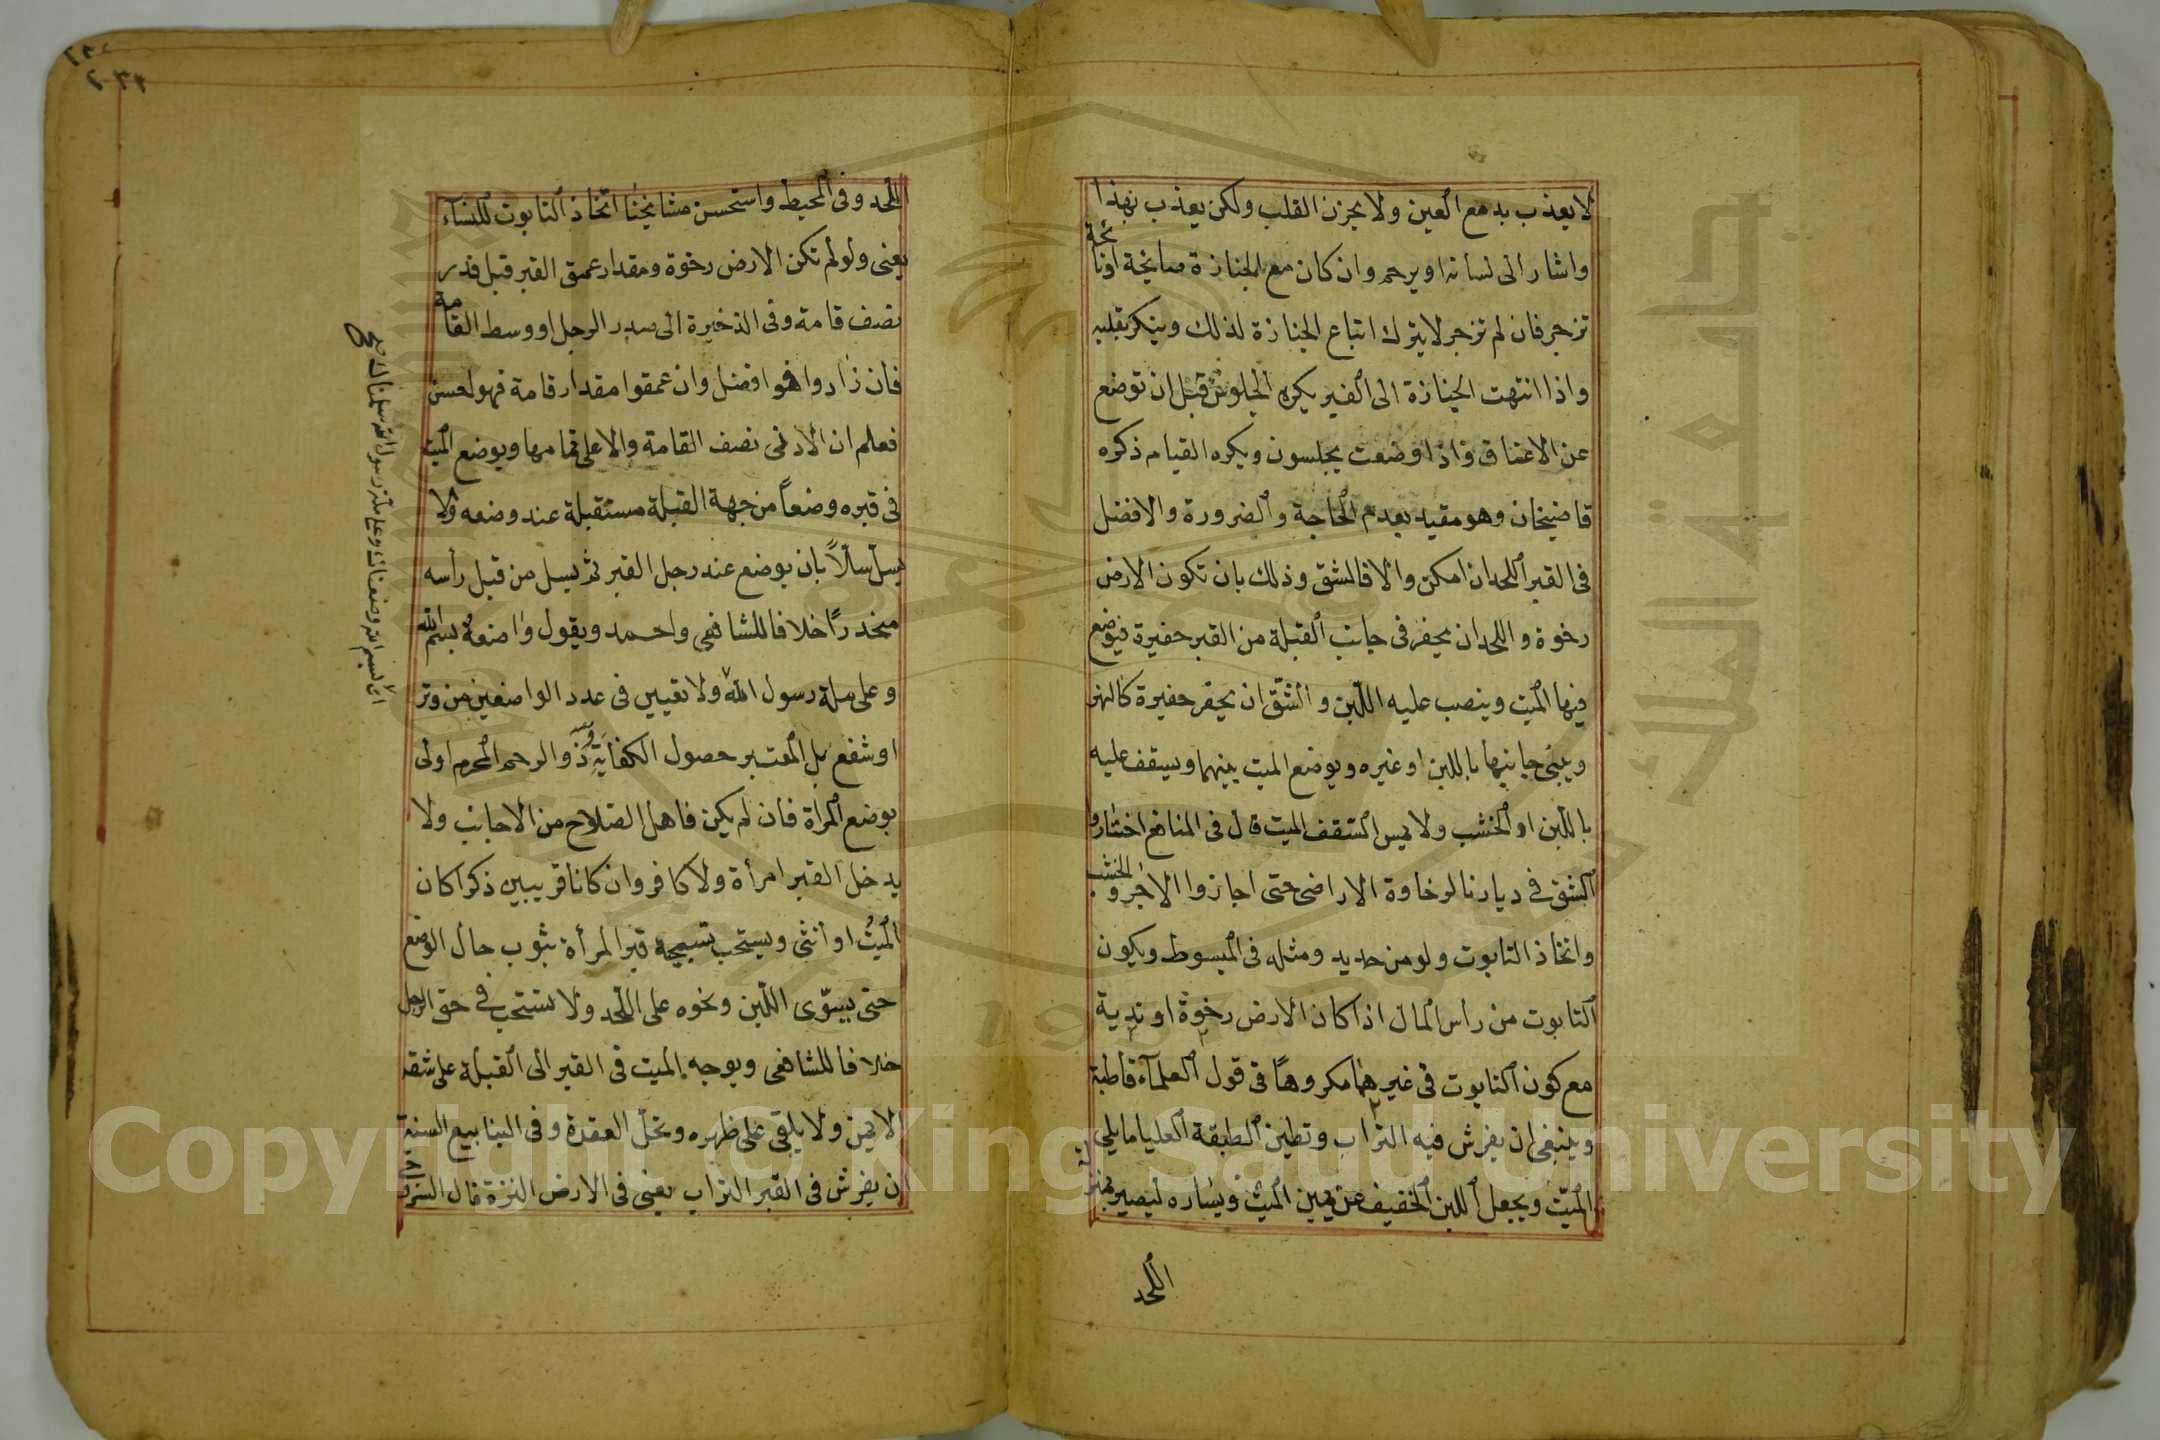 لا يعذب بدمع العين ولا بحزن القلب ولكن يعذب بهذا
واشار الى لسانه او يرحم وان كان مع الجنازة صايخة او نائحة
تزجر فان لم تزجر لا يترك اتباع الجنازة لذلك وينكر بقلبه
واذا انتهت الجنازة الى القبر يكره الجلوس قبل ان توضع
عن الاعناق واذا وضعت يجلسون ويكره القيام ذكره
قاضيخان وهو مقيد بعدم الحاجة والضرورة والافضل
فى القبر اللحد ان امكن والا فالشق وذلك بان تكون الارض
رخوة و اللحد ان يحفر فى جانب القبلة من القبر حفيرة فيوضع
فيها الميت وينصب عليه اللبن و الشق ان يحفر حفيرة كالنهر
ويبنى جانبها باللبن او غيره ويوضع الميت بينهما ويسقف عليه
باللبن او الخشب ولا يمس السقف الميت قال فى المنافع اختاروا
الشق فى ديارنا لرخاوة الاراضى حتى اجازوا الاجر والخشب
واتخاذ التابوت ولو من حديد ومثله فى المبسوط ويكون
التابوت من رأس المال اذا كان الارض رخوة او ندية
مع كون التابوت فى غيرهما مكروها فى قول العلماء قاطبة
وينبغى ان يفرش فيه التراب وتطين الطبقة العليا مما يلى
الميت ويجعل اللبن الخفيف عن يمين الميت ويساره ليصير بمنزلة
اللحد
اللحد وفى المحيط واستحسن مشايخنا اتخاذ التابوت للنساء
يعنى ولو لم تكن الارض رخوة ومقدار عمق القبر قبل قدر
نصف قامة وفى الذخيرة الى صدر الرجل او وسط القامة
فان زادوا فهو افضل وان عمقوا مقدار قامة فهو احسن
فعلم ان الادنى نصف القامة والاعلى تمامها ويوضع الميت
فى قبره وضعاً من جهة القبلة مستقبلة عند وضعه ولا
يسل سلاً بان يوضع عند رجل القبر ثم يسل من قبل رأسه
منحدراً خلافا للشافعى واحمد ويقول واضعه بسم الله
وعلى ملة رسول الله ولا تعيين فى عدد الواضعين من وتر
او شفع بل المعتبر حصول الكفاية وذو الرحم المحرم اولى
بوضع المرأة فان لم يكن فاهل الصلاح من الاجانب ولا
يدخل القبر امرأة ولا كافر وان كانا قريبين ذكرا كان
الميت او أنثى ويستحب تسجية قبر المرأة بثوب حال الوضع
حتى يسوّى اللبن ونحوه على اللحد ولا يستحب فى حق الرجل
خلافا للشافعى ويوجه الميت فى القبر الى القبلة على شقه
الايمن ولا يلقى على ظهره وتحل العقدة وفى الينابيع السنة
ان يفرش فى القبر التراب يعنى فى الارض النزة قال السرخسى
اى بسم الله وضعناك وعلى ملة رسول الله سلمناك
Copyright © King Saud University